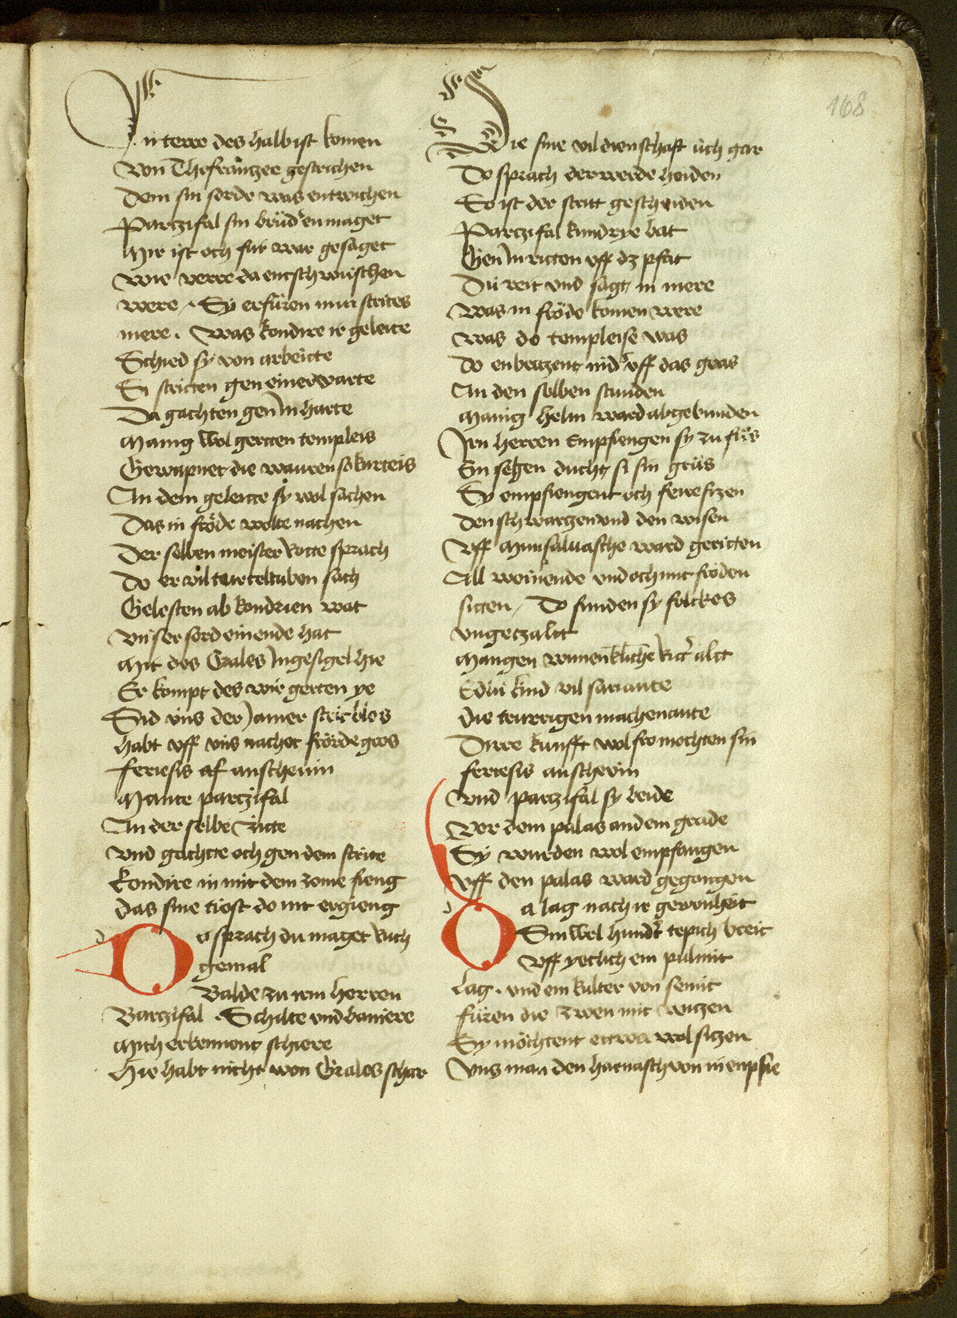 168
In terre des halb ist komen
Von Thefranzee gestrichen
Dem sin sorde was entwichen
Parczifal sin brúder en maget
Mir ist och fúr war gesaget
Wie verre da entschwúschen
were · Sy erfúren nun strites
mere · Was kondire ir geleite
Schied sy von arbeitte
Si stritten gen einer warte
Da gachten gen in harte
Manig wol geritten templeis
Gewapnet die waren so kurteis
An dem geleitte sy wol sachen
Das in fröde wolte nachen
Der selben meister rotte sprach
Do er vil turteltuben sach
Gelesten ab kondrien wat
Unser sord ein ende hat
Mit des Grales Ingesigel hie
Er kompt des wir gerten ye
Sid úns der Jamer strick beslos
habt uff úns nachet frörde gros
feriesis af anschevin
Mante parczifal
An der selbe zitte
Vnd gachte och gen dem strite
Kondire in mit dem zome fieng
Das sine tiost do nit ergieng
Do sprach du maget rich
gemal
Balde zu irm herren
Barczifal · Schilte vnd baniere
Mich erkennent schiere
Hie habt nicht won Grales schar
Die sine vil dienschaft úch gar
Do sprach der werde heiden
So ist der stritt gescheiden
Parczifal kundrye bat
Gen In ritten uff dz pfat
Dú reit vnd sagt in mere
Was in fröde komen were
Was do templeise was
Do enbeitzent nider uff das gras
An den selben stunden
Manig helm ward abgebunden
Irn herren Empfiengen sy zu fús
Sin segen ducht si sin grús
Sy empfiengent och ferefizen
Den schwarczen vnd den wisen
Uff Munsalvasche ward geritten
All weinende vnd och mit fröden
sitten / Do funden sy folckes
vngeczalt
Mangen wunenkliche ritter alt
Edlú kind vil sariante
Die trurrigen machenante
Dirre kunfft wol fro mochten sin
feriesis anschevin
Vnd parczifal sy beide
Vor dem palas an dem grade
Sy wurden wol empfangen
Uff den palas ward gegangen
Da lag nach ir gewonheit
Sinwel hundert tepich breit
Uff yetlich ein pulmit
Lag · vnd ein kulter von semit
Fúren die zwen mit witzen
Sy möchtent ettwa wol sitzen
Vns man den harnasch von in enpfie